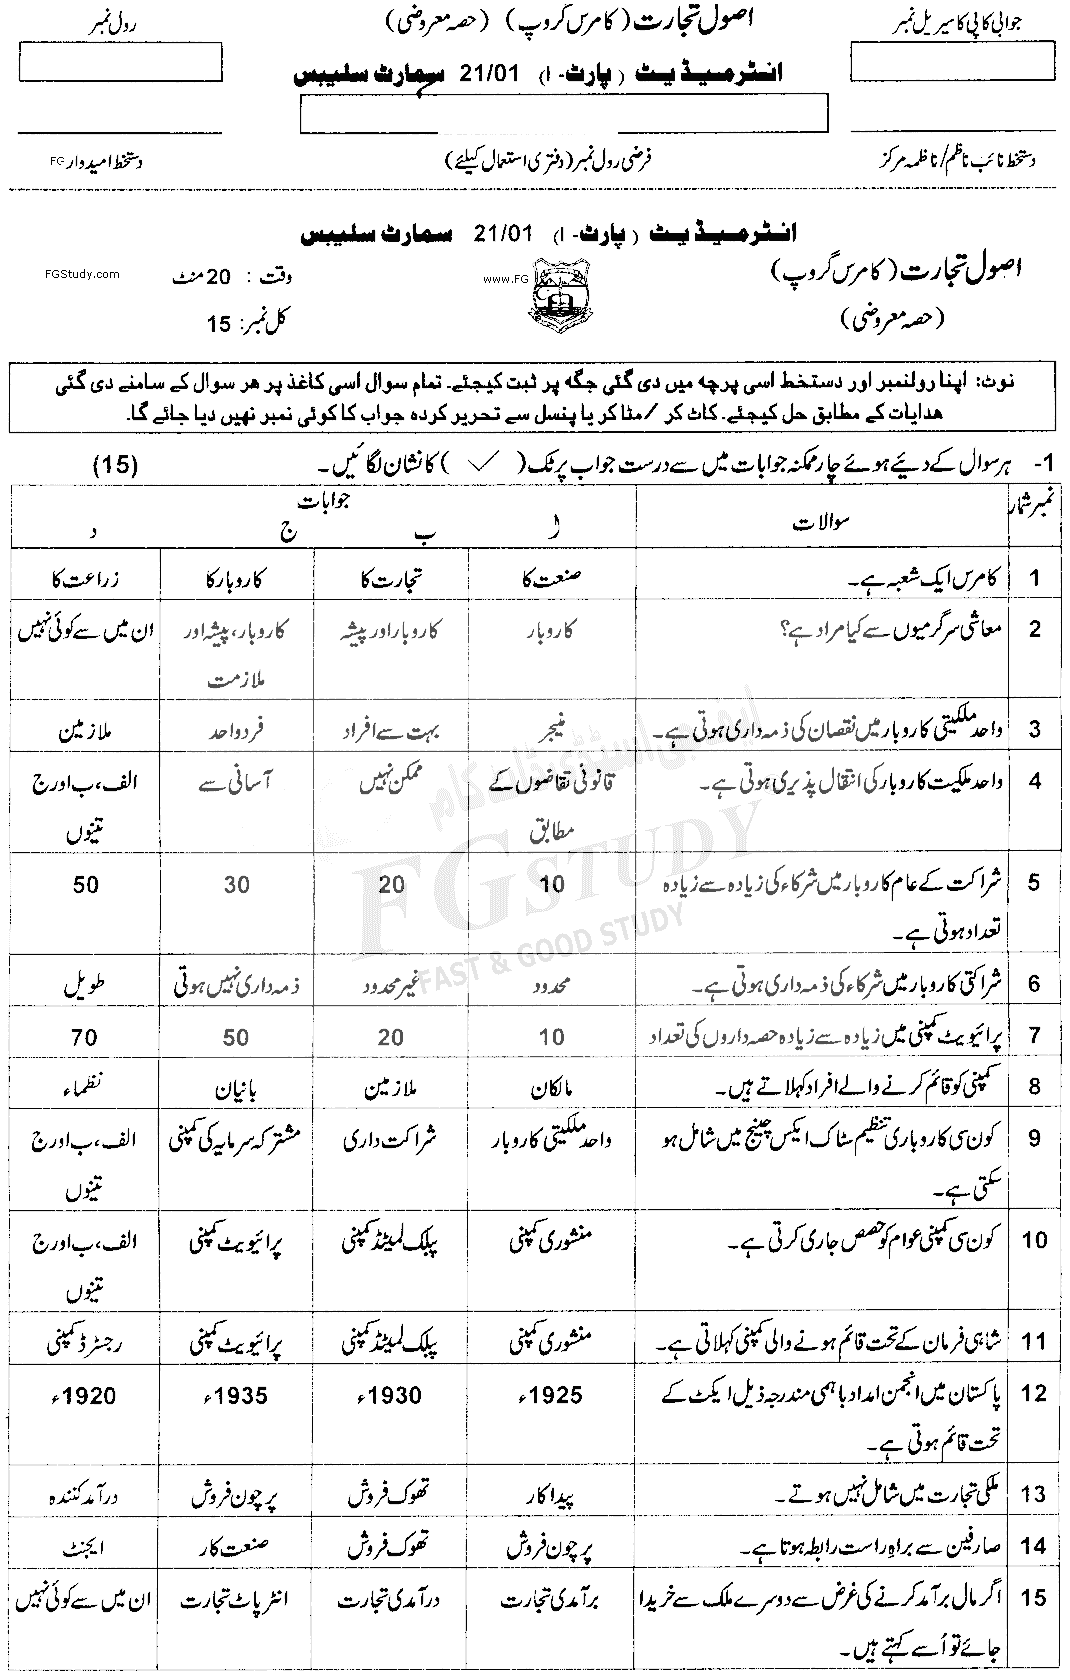 جوابی کاپی کا سیریل نمبر
اصول تجارت (کامرس گروپ) (حصہ معروضی)
رول نمبر
انٹرمیڈیٹ (پارٹ-I) 21/01 سمارٹ سلیبس
دستخط نائب ناظم/ناظمہ مرکز
فرضی رول نمبر (دفتری استعمال کیلئے)
دستخط امیدوار FG
انٹرمیڈیٹ (پارٹ-I) 21/01 سمارٹ سلیبس
اصول تجارت (کامرس گروپ)
www.FG
وقت : 20 منٹ
FGStudy.com
(حصہ معروضی)
کل نمبر: 15
نوٹ: اپنا رولنمبر اور دستخط اسی پرچہ میں دی گئی جگہ پر ثبت کیجئے۔ تمام سوال اسی کاغذ پر ھر سوال کے سامنے دی گئی
ھدایات کے مطابق حل کیجئے۔ کاٹ کر /مٹا کر یا پنسل سے تحریر کردہ جواب کا کوئی نمبر نھیں دیا جائے گا۔
1- ہر سوال کے دیئے ہوئے چار ممکنہ جوابات میں سے درست جواب پر ٹک (✓) کا نشان لگائیں۔ (15)
نمبر شمار سوالات جوابات
ا ب ج د
1 کامرس ایک شعبہ ہے۔ صنعت کا تجارت کا کاروبار کا زراعت کا
2 معاشی سرگرمیوں سے کیا مراد ہے؟ کاروبار کاروبار اور پیشہ کاروبار، پیشہ اور ان میں سے کوئی نہیں
ملازمت
3 واحد ملکیتی کاروبار میں نقصان کی ذمہ داری ہوتی ہے۔ منیجر بہت سے افراد فرد واحد ملازمین
4 واحد ملکیت کاروبار کی انتقال پذیری ہوتی ہے۔ قانونی تقاضوں کے ممکن نہیں آسانی سے الف، ب اور ج
مطابق تینوں
5 شراکت کے عام کاروبار میں شرکاء کی زیادہ سے زیادہ 10 20 30 50
تعداد ہوتی ہے۔
6 شراکتی کاروبار میں شرکاء کی ذمہ داری ہوتی ہے۔ محدود غیر محدود ذمہ داری نہیں ہوتی طویل
7 پرائیویٹ کمپنی میں زیادہ سے زیادہ حصہ داروں کی تعداد 10 20 50 70
8 کمپنی کو قائم کرنے والے افراد کہلاتے ہیں۔ مالکان ملازمین بانیان نظماء
9 کون سی کاروباری تنظیم سٹاک ایکس چینج میں شامل ہو واحد ملکیتی کاروبار شراکت داری مشترکہ سرمایہ کی کمپنی الف، ب اور ج
سکتی ہے۔ تینوں
10 کون سی کمپنی عوام کو حصص جاری کرتی ہے۔ منشوری کمپنی پبلک لمیٹڈ کمپنی پرائیویٹ کمپنی الف، ب اور ج
تینوں
11 شاہی فرمان کے تحت قائم ہونے والی کمپنی کہلاتی ہے۔ منشوری کمپنی پبلک لمیٹڈ کمپنی پرائیویٹ کمپنی رجسٹرڈ کمپنی
12 پاکستان میں انجمن امداد باہمی مندرجہ ذیل ایکٹ کے 1925ء 1930ء 1935ء 1920ء
تحت قائم ہوتی ہے۔
13 ملکی تجارت میں شامل نہیں ہوتے۔ پیداکار تھوک فروش پرچون فروش درآمد کنندہ
14 صارفین سے براہ راست رابطہ ہوتا ہے۔ پرچون فروش تھوک فروش صنعت کار ایجنٹ
15 اگر مال برآمد کرنے کی غرض سے دوسرے ملک سے خریدا برآمدی تجارت درآمدی تجارت انٹرپاٹ تجارت ان میں سے کوئی نہیں
جائے تو اُسے کہتے ہیں۔
ایف جی اسٹڈی ڈاٹ کام
FGSTUDY
FAST & GOOD STUDY